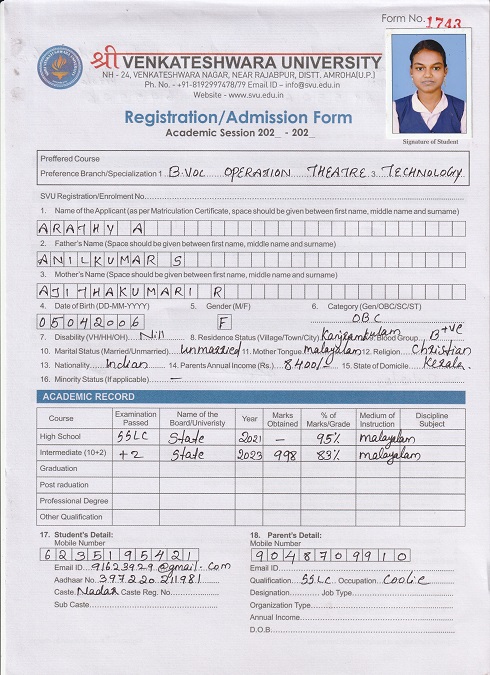 Form No. 1743
श्री VENKATESHWARA UNIVERSITY
NH - 24, VENKATESHWARA NAGAR, NEAR RAJABPUR, DISTT. AMROHA(U.P.)
Ph. No. - +91-8192997478/79 Email ID – info@svu.edu.in
Website - www.svu.edu.in
Registration/Admission Form
Academic Session 202_ - 202_
Signature of Student
Preffered Course
Preference Branch/Specialization 1. B.VOC OPERATION THEATRE 3. TECHNOLOGY
SVU Registration/Enrolment No.
1. Name of the Applicant (as per Matriculation Certificate, space should be given between first name, middle name and surname)
ARATHY A
2. Father's Name (Space should be given between first name, middle name and surname)
ANILKUMAR S
3. Mother's Name (Space should be given between first name, middle name and surname)
AJITHAKUMARI R
4. Date of Birth (DD-MM-YYYY) 5. Gender (M/F) 6. Category (Gen/OBC/SC/ST)
05042006 F OBC
7. Disability (VH/HH/OH). Nill 8. Residence Status (Village/Town/City) 9. Blood Group. B+ve
10. Marital Status (Married/Unmarried). unmarried 11. Mother Tongue malayalam 12. Religion. Christian
13. Nationality. Indian 14. Parents Annual Income (Rs.) 8400/- 15. State of Domicile. Kerala
16. Minority Status (If applicable). —
ACADEMIC RECORD
Course Examination Passed Name of the Board/Univeristy Year Marks Obtained % of Marks/Grade Medium of Instruction Discipline Subject
High School SSLC State 2021 - 95% malayalam
Intermediate (10+2) +2 State 2023 998 83% malayalam
Graduation
Post raduation
Professional Degree
Other Qualification
17. Student's Detail: 18. Parent's Detail:
Mobile Number Mobile Number
6235195421 9048709910
Email ID. 91623929@gmail.com Email ID
Aadhaar No. 397220211981 Qualification. SSLC Occupation. Coolie
Caste. Nadar Caste Reg. No. Designation. Job Type.
Sub Caste. Organization Type.
Annual Income.
D.O.B.